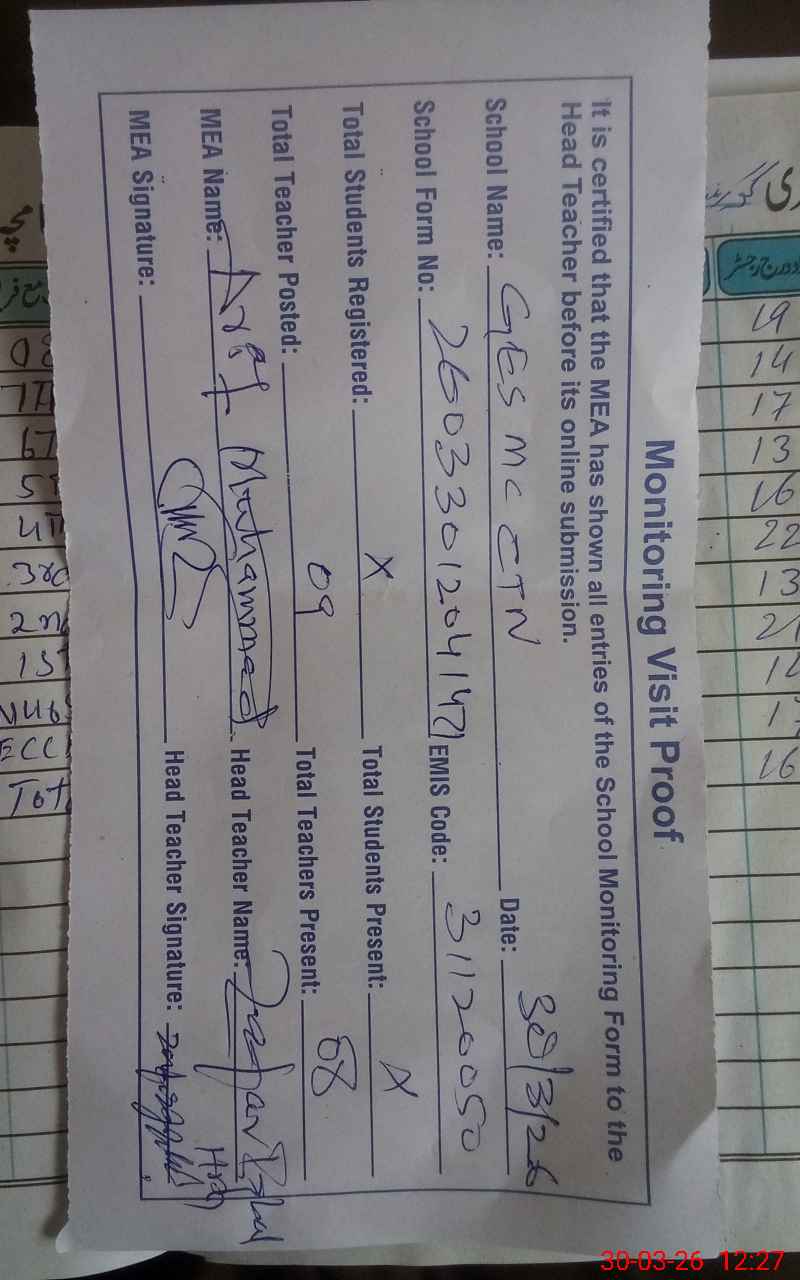 Monitoring Visit Proof
It is certified that the MEA has shown all entries of the School Monitoring Form to the
Head Teacher before its online submission.
School Name: GES MC CTN Date: 30/3/26
School Form No: EMIS Code: 31120050
Total Students Registered: X Total Students Present: X
Total Teacher Posted: 09 Total Teachers Present: 08
MEA Name: Arif Muhammad Head Teacher Name:
MEA Signature: Head Teacher Signature:
19
14
17
13
16
22
13
21
16
3rd
Tot
30-03-26 12:27